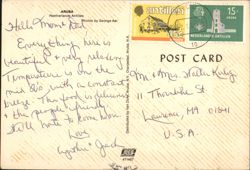 ARUBA
Netherlands Antilles
Photo by George Aar
Hello Mom & Dad
Everything here is
beautiful & very relaxing
Temperature is in the
mid 80's with a constant
breeze. The food is delicious
& the people friendly
Still hate to come home
Love
Cynthia & Jack
antillen
15c
NEDERLANDSE ANTILLEN
POST CARD
Mr & Mrs Walter
11 Thorndike St
MA 01841
U.S.A.